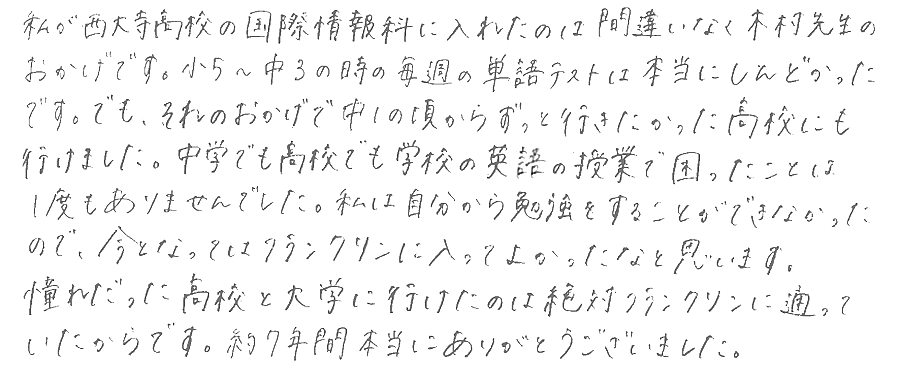 私が西大寺高校の国際情報科に入れたのは間違いなく木村先生の
おかげです。小5〜中3の時の毎週の単語テストは本当にしんどかった
です。でも、それのおかげで中1の頃からずっと行きたかった高校にも
行けました。中学でも高校でも学校の英語の授業で困ったことは
1度もありませんでした。私は自分から勉強をすることができなかった
ので、今となってはフランクリンに入ってよかったなと思います。
憧れだった高校と大学に行けたのは絶対フランクリンに通って
いたからです。約7年間本当にありがとうございました。